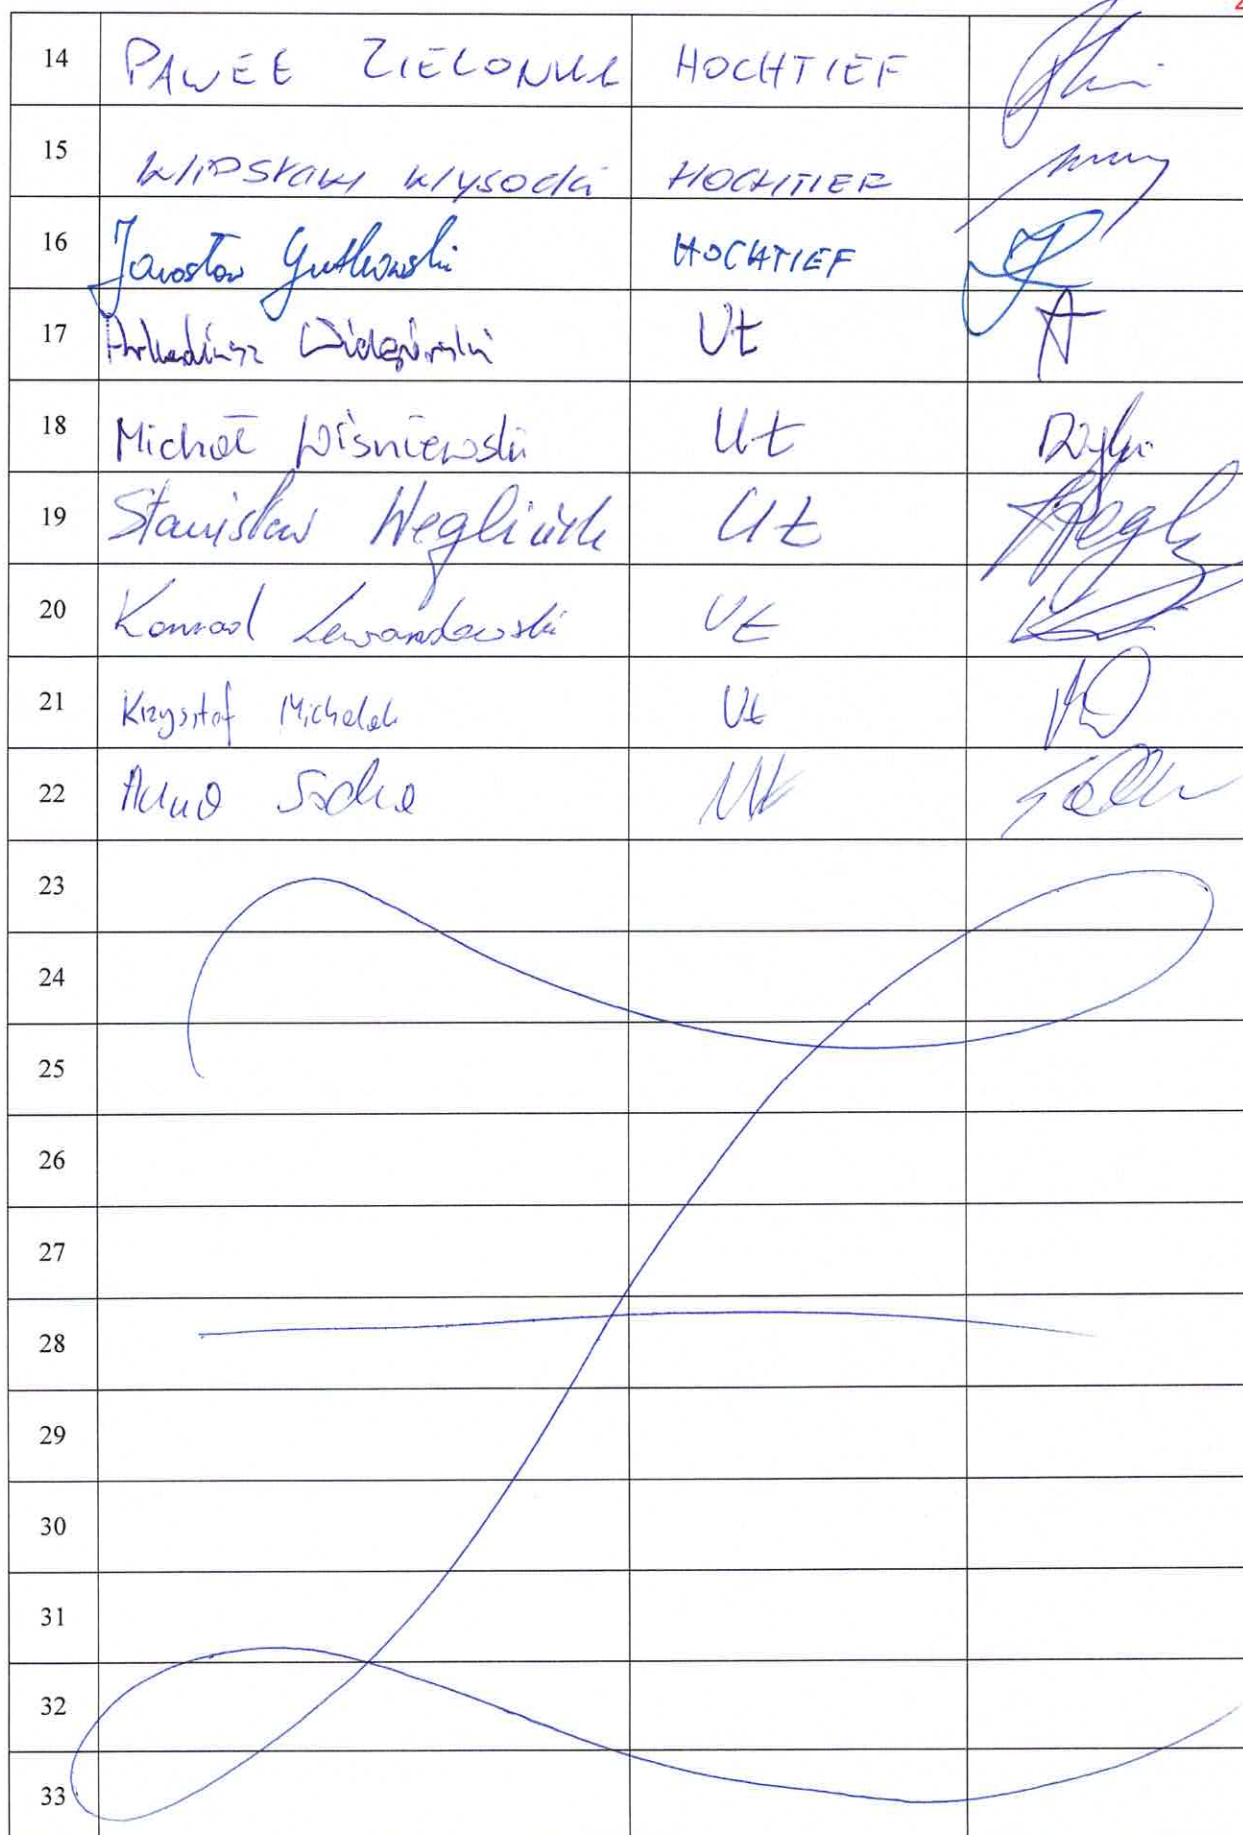 14 PAWEŁ ZIELONKA HOCHTIEF
15 WIESŁAW WYSOCKI HOCHTIEF
16 Jarosław Gutkowski HOCHTIEF
17 Arkadiusz UŁ
18 Michał Wiśniewski UŁ
19 Stanisław UŁ
20 Konrad Lewandowski UŁ
21 Krzysztof Michalak UŁ
22 Anna Socha UŁ
23
24
25
26
27
28
29
30
31
32
33